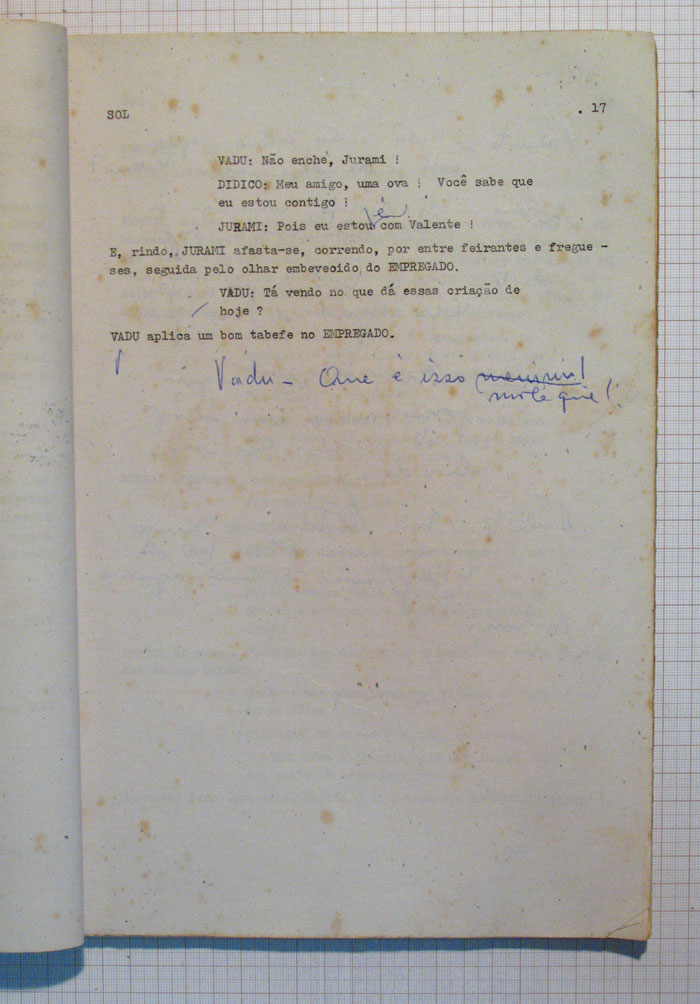 SOL . 17
VADU: Não enche, Jurami !
DIDICO: Meu amigo, uma ova ! Você sabe que
eu estou contigo !
é
JURAMI: Pois eu estou com Valente !
E, rindo, JURAMI afasta-se, correndo, por entre feirantes e fregue -
ses, seguida pelo olhar embevecido do EMPREGADO.
VADU: Tá vendo no que dá essas criação de
hoje ?
VADU aplica um bom tabefe no EMPREGADO.
Vadu - Que é isso !
moleque !